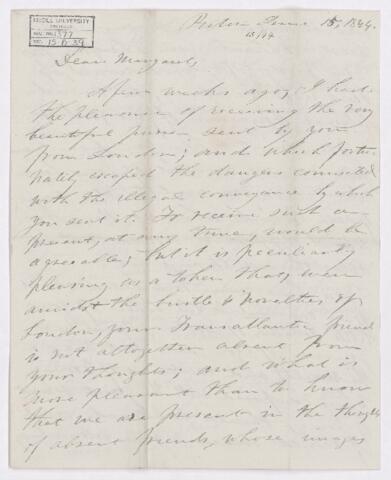 McGILL UNIVERSITY
ARCHIVES
ACC. NO. 1377
REF. 15/6/39
June 15, 1844.
15/14
Dear Margaret,
A few weeks ago, I had
the pleasure of receiving the very
beautiful purse sent by you
from London; and which fortu-
nately escaped the dangers connected
with the illegal conveyance by which
you sent it. To receive such a
present, at any time, would be
agreeable; but it is peculiarly
pleasing as a token that, even
amidst the bustle & novelties of
London, your Transatlantic friend
is not altogether absent from
your thoughts; and what is
more pleasant than to know
that we are present in the thoughts
of absent friends, whose images